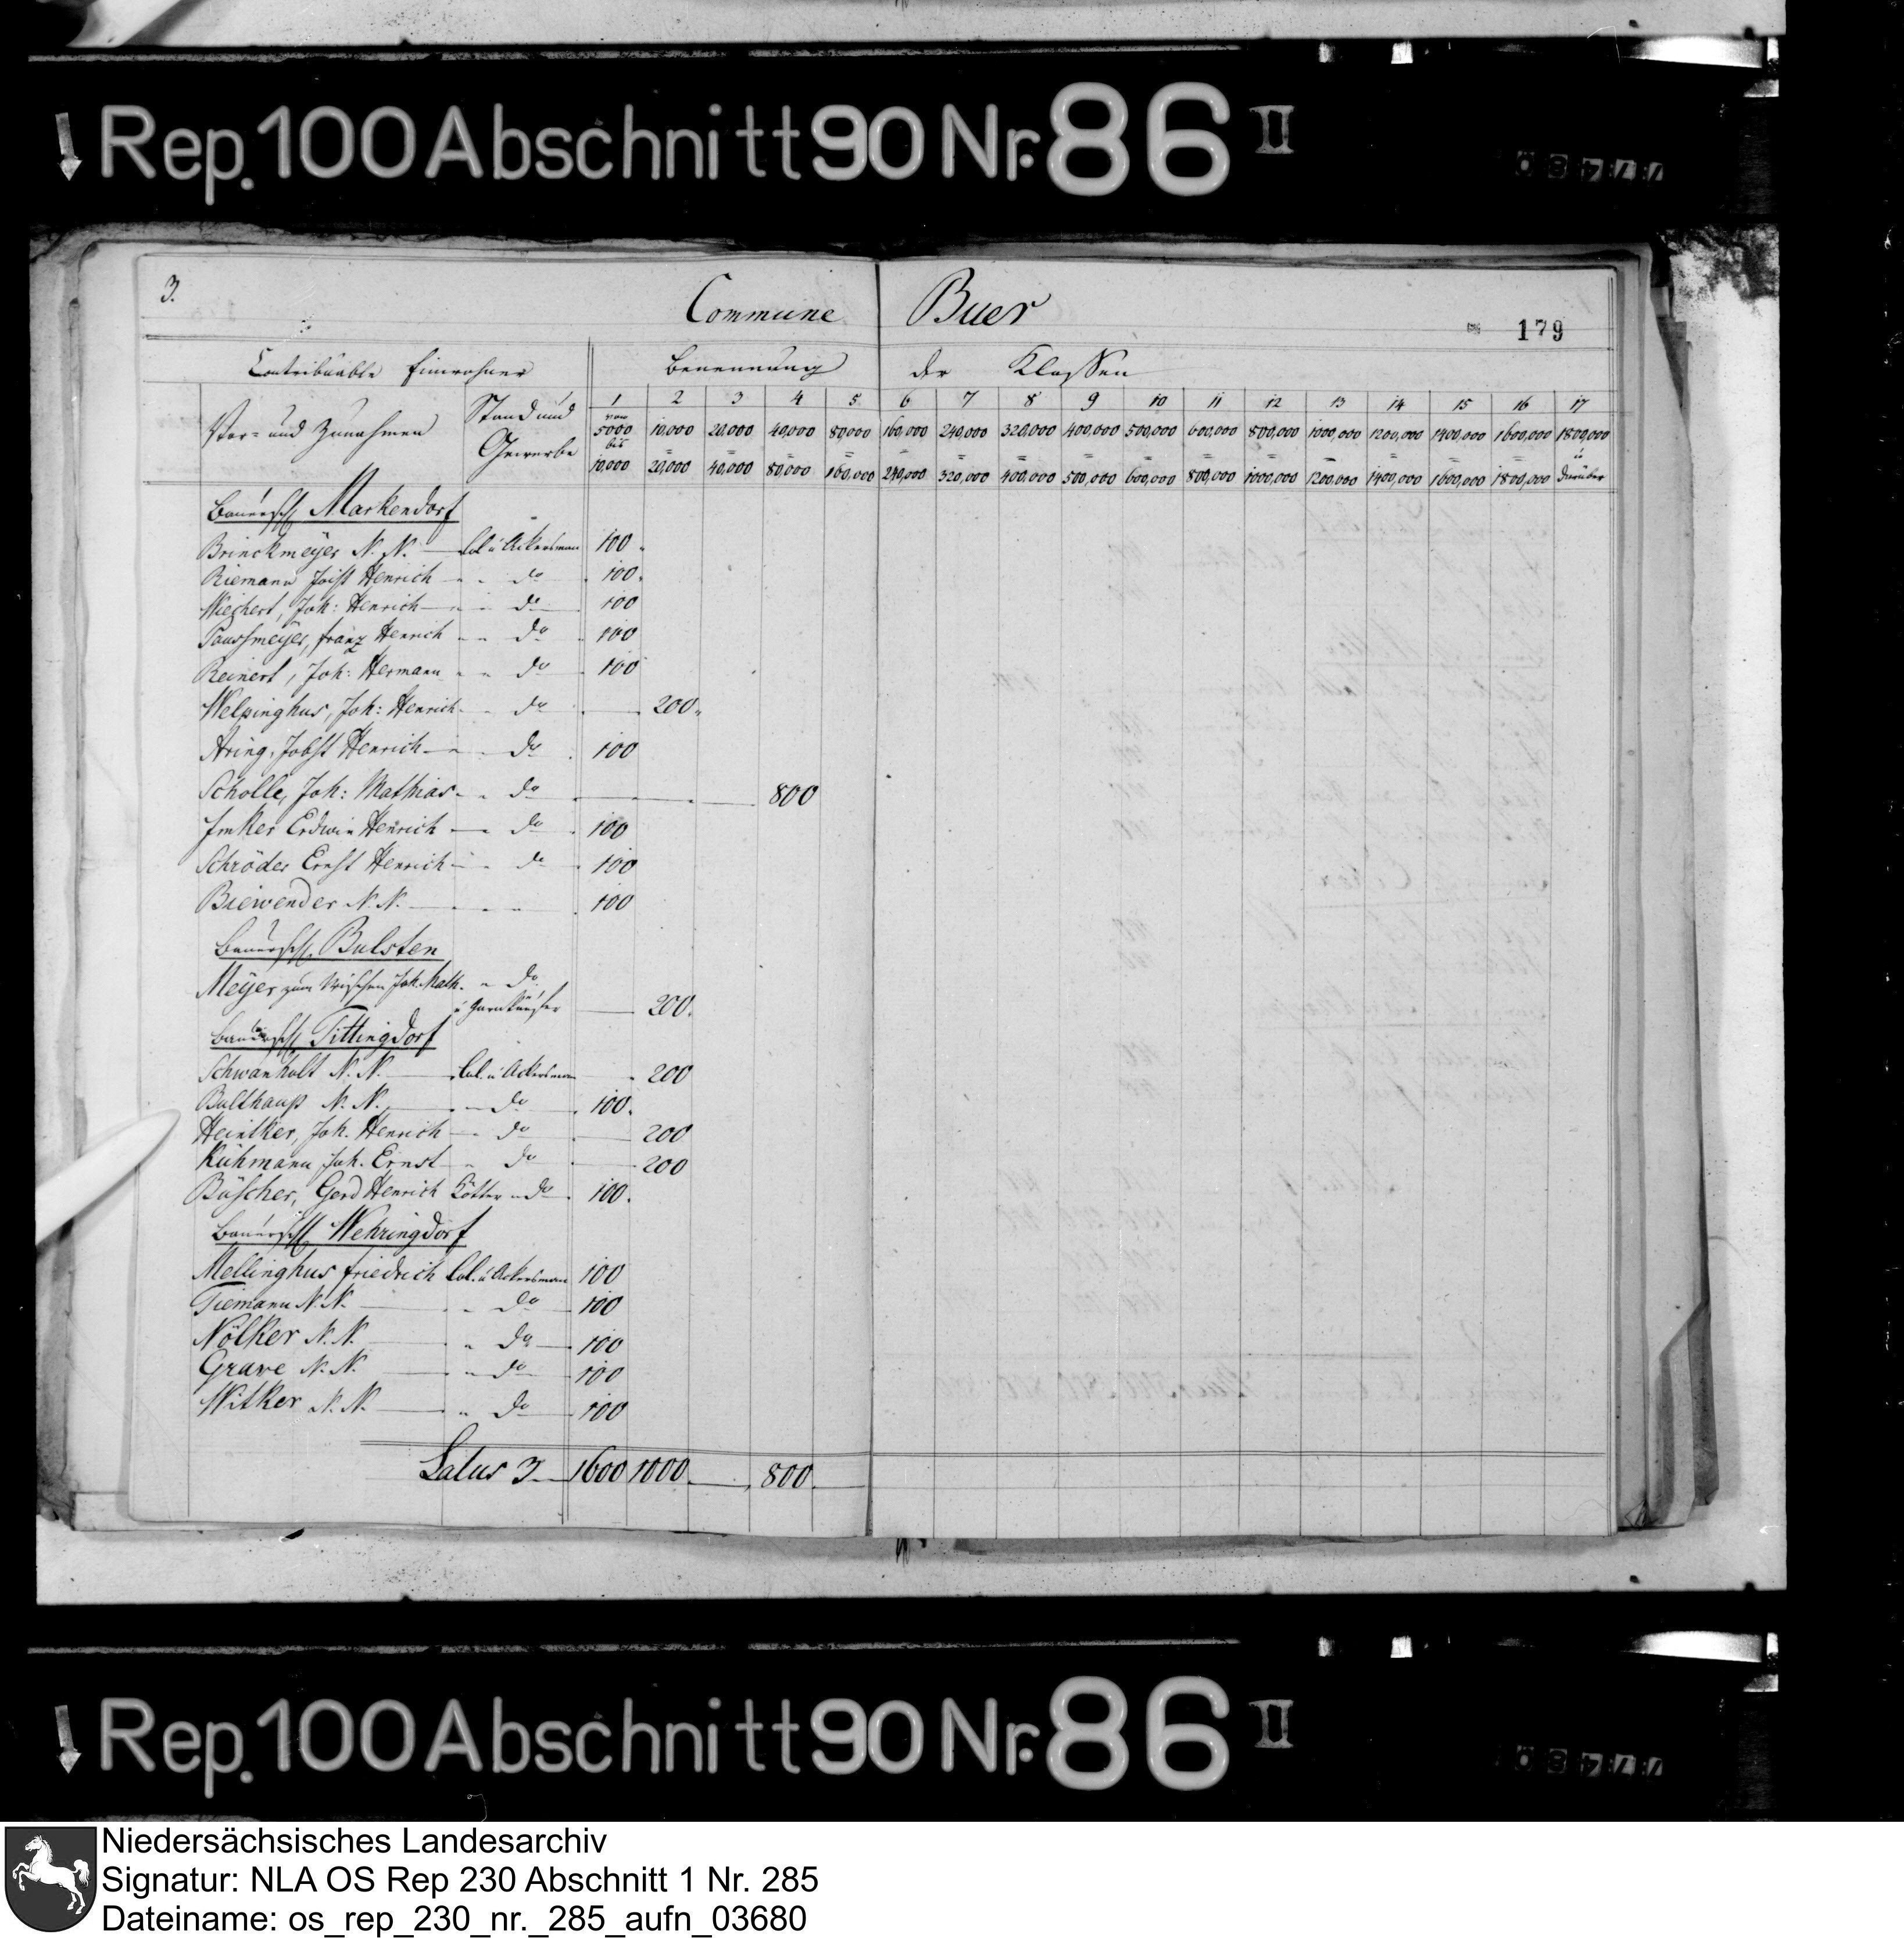 Rep. 100 Abschnitt 90 Nr. 86 II
3.
Commune Buer
179
Contribuable Einwohner
Benennung der Klassen
Vor- und Zunahmen
Stand und Gewerbe
1 2 3 4 5 6 7 8 9 10 11 12 13 14 15 16 17
von 5000 bis 10,000
10,000 = 20,000
20,000 = 40,000
40,000 = 80,000
80,000 = 160,000
160,000 = 240,000
240,000 = 320,000
320,000 = 400,000
400,000 = 500,000
500,000 = 600,000
600,000 = 800,000
800,000 = 1000,000
1000,000 = 1200,000
1200,000 = 1400,000
1400,000 = 1600,000
1600,000 = 1800,000
1800,000 u darüber
Bauersch. Markendorf
Brinckmeyer N. N. Col. u Ackersman 100
Riemann Joist Henrich do 100
Wiechert, Joh: Henrich do 100
franz Henrich do 100
Reinert, Joh: Hermann do 100
Welpinghus, Joh: Henrich do 200
Aring, Jobst Henrich do 100
Scholle, Joh: Mathias do 800
Imker Erdwin Henrich do 100
Schröder Ernst Henrich do 100
Biewender N. N. 100
Bauersch. Bulsten
Meyer zum Joh. Math. do
u 200
Bauersch. Tittingdorf
Schwanholt N. N. Col. u Ackersman 200
Bulthaup N. N. do 100
Heintker, Joh. Henrich do 200
Kuhmann Joh. Ernst do 200
Büscher, Gerd Henrich Kötter u do 100
Bauersch. Wehringdorf
Mellinghus friedrich Col. u Ackersman 100
Tiemann N. N. do 100
Nölker N. N. do 100
Grave N. N. do 100
Witker N. N. do 100
Latus 3 1600 1000 800
Rep. 100 Abschnitt 90 Nr. 86 II
Niedersächsisches Landesarchiv
Signatur: NLA OS Rep 230 Abschnitt 1 Nr. 285
Dateiname: os_rep_230_nr._285_aufn_03680